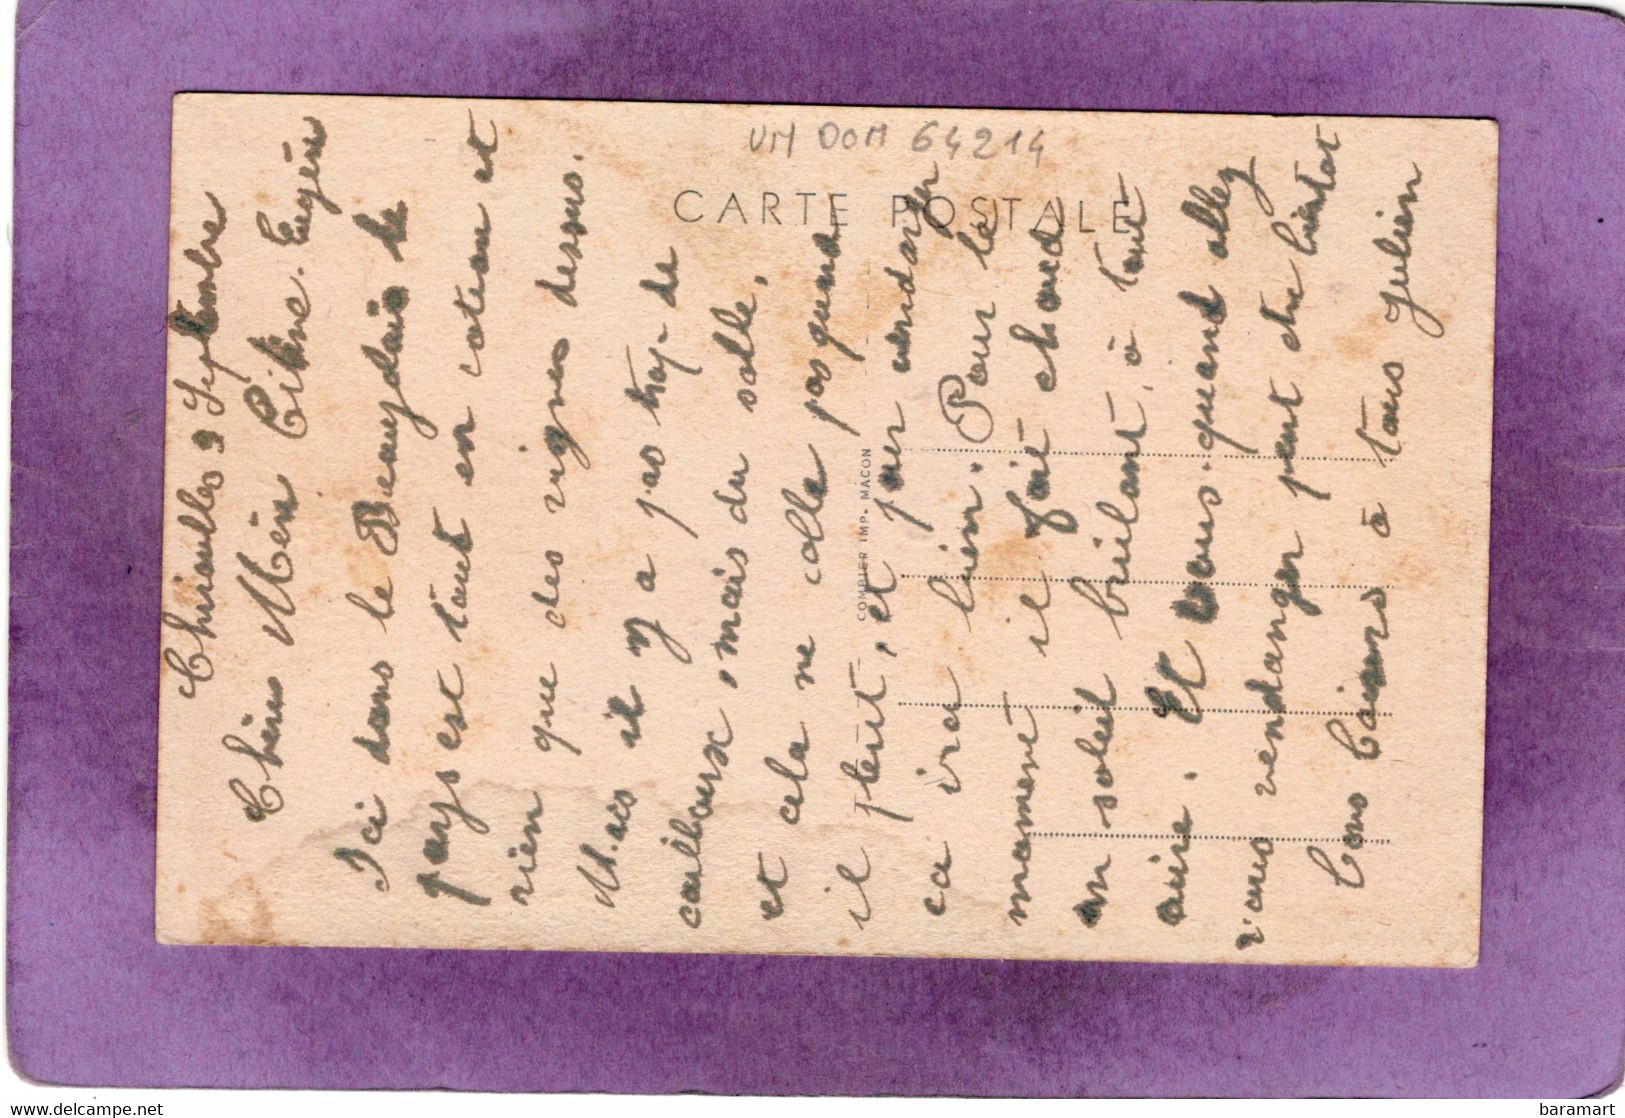 UM DOM 64214
CARTE POSTALE
COMBIER IMP. MACON
Chiroubles 9 Septembre
Chère Mère Titine. Eugène
Ici dans le Beaujolais le
pays est tout en coteau et
rien que des vignes dessus.
Mais il y a pas trop de
cailloux, mais du sable,
et cela ne colle pas quand
il pleut, et pour vendanger
ca ira bien. Pour le
moment il fait chaud
un soleil brûlant, à tout
cuire. Et vous. quand allez
vous vendanger peut etre bientot
Bons Baisers à tous Julien
baramart
delcampe.net